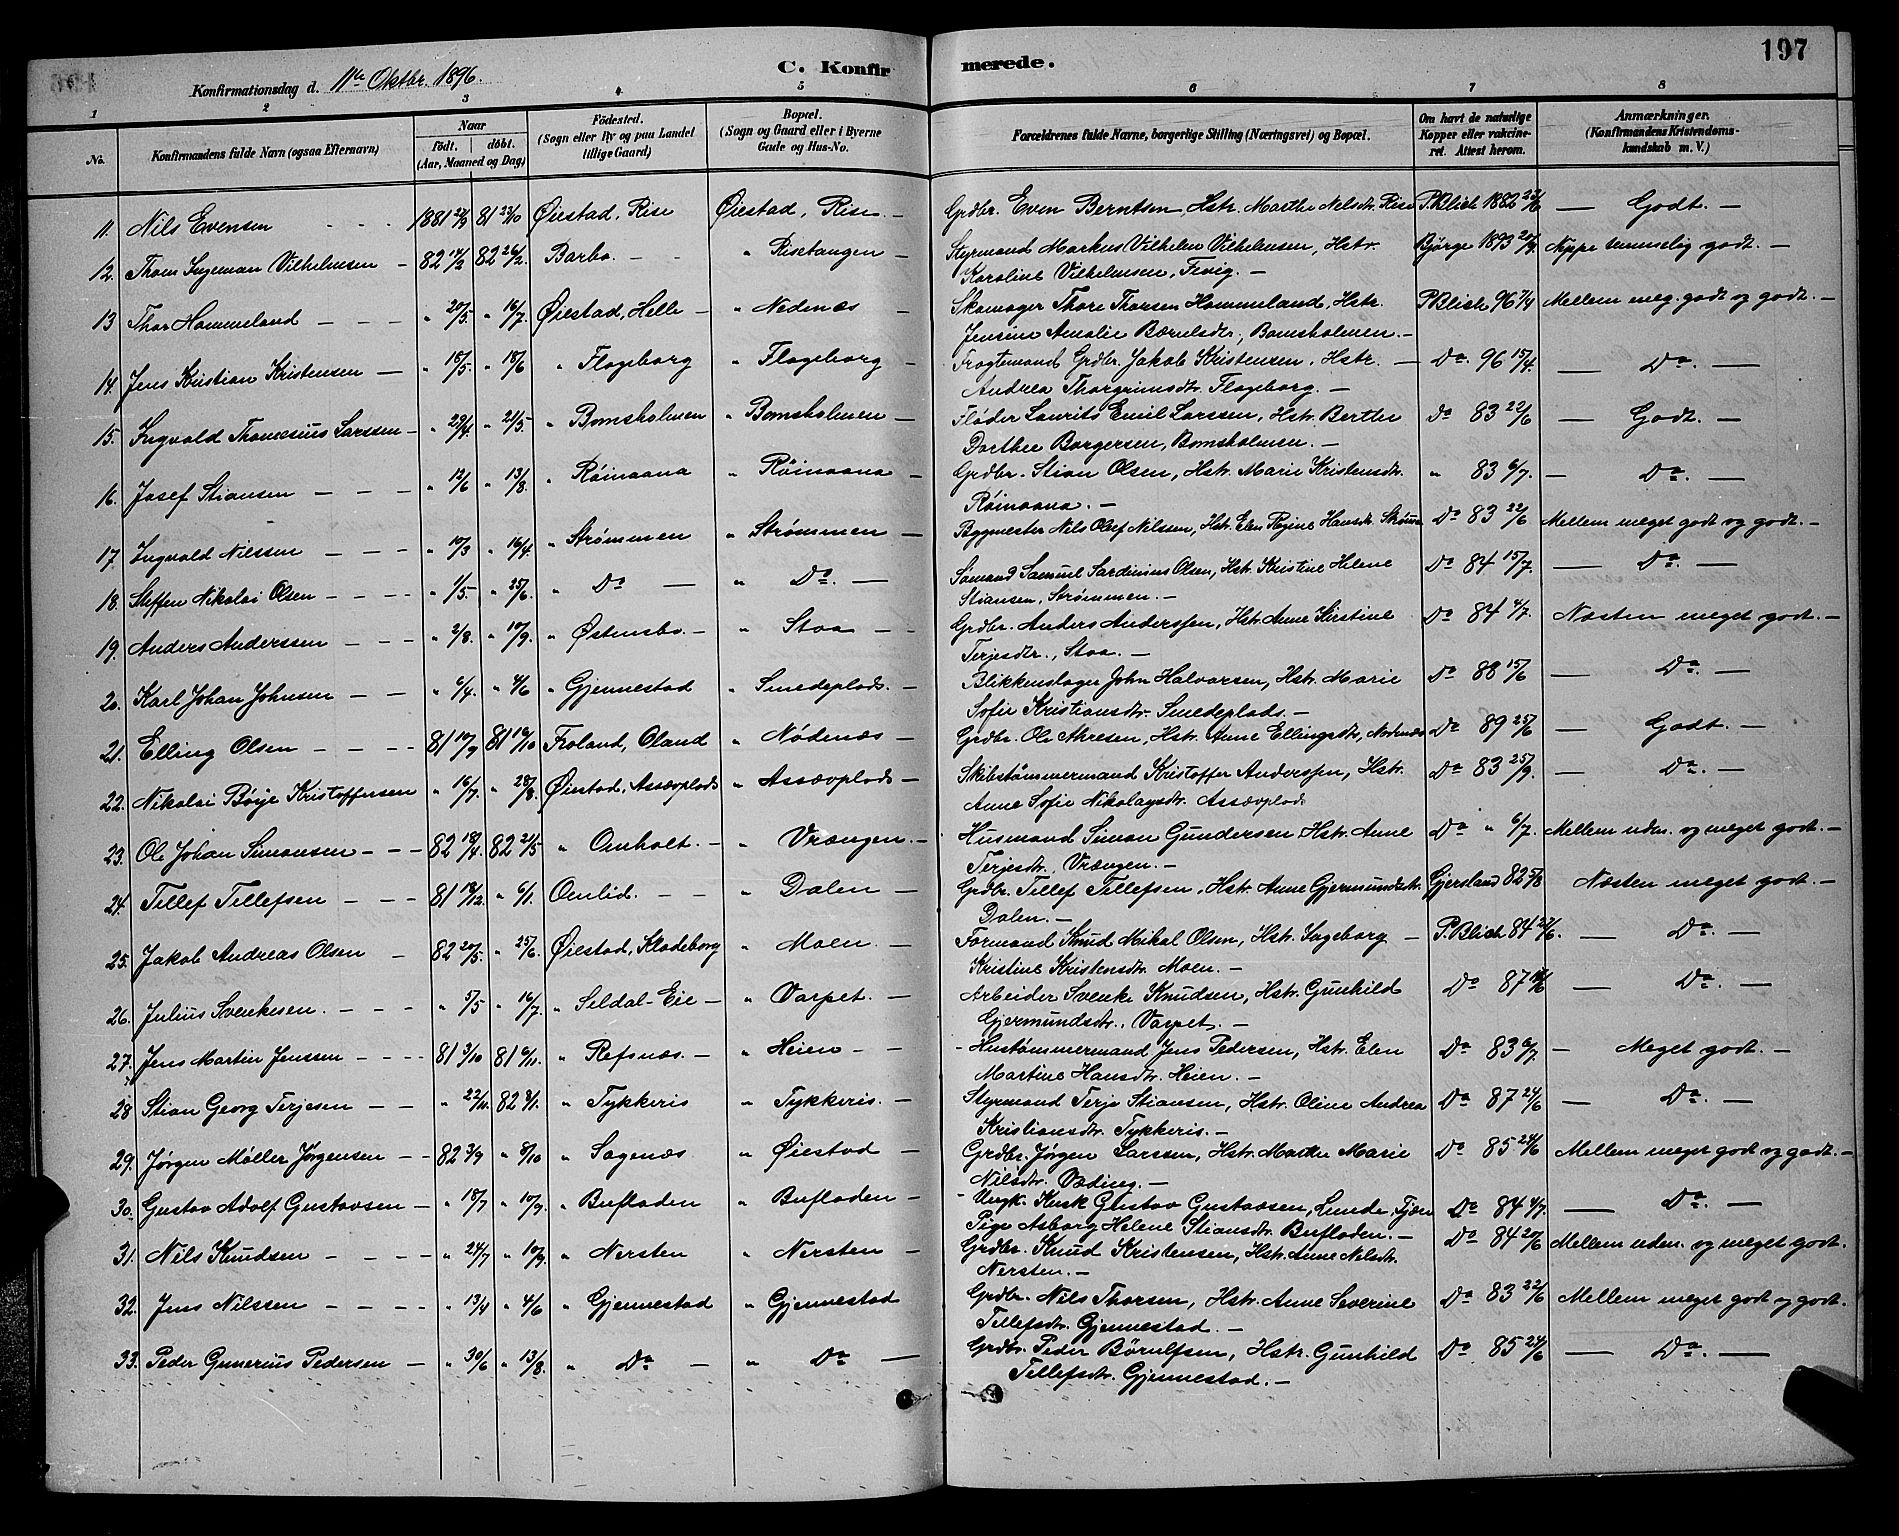 C. Konfirmerede.
197
Konfirmationsdag d. 11te Oktbr. 1896.
1 2 3 4 5 6 7 8
No.
Konfirmandens fulde Navn (ogsaa Efternavn)
Naar
födt. döbt.
(Aar, Maaned og Dag)
Födested.
(Sogn eller By og paa Landet
tillige Gaard)
Bopæl.
(Sogn og Gaard eller i Byerne
Gade og Hus-No.
Forældrenes fulde Navne, borgerlige Stilling (Næringsvei) og Bopæl.
Om havt de naturlige
Kopper eller vakcine-
ret. Attest herom.
Anmærkninger.
(Konfirmandens Kristendoms-
kundskab m. V.)
11. Nils Evensen 1881 81 23/10 Øiestad, Rise Øiestad, Rise Grdbr. Even Berntsen, Hstr. Marthe Nelsdtr. Rise P. Blich 1882 22/6 — Godt. —
12. Thom Ingeman Vilhelmsen 82 14/2 82 26/2 Barbo. " Risetangen Styrmand Markus Vilhelm Vilhelmsen, Hstr.
Karoline Vilhelmsen, Fevig. — Bjørge 1893 20/9 Neppe temmelig godt. —
13 Thor Hammeland " 20/5. " 16/7. Øiestad, Helle " Nedenæs Skomager Thore Thorsen Hammeland, Hstr.
Jensine Amalie Bærulsdtr, Bomsholmen. — P. Blich 96 7/4 Mellem meg. godt og godt. —
14. Jens Kristian Kristensen " 15/5. " 18/6 " Flageborg " Flageborg Fragtemand Grdbr. Jakob Kristensen, Hstr.
Andrea Thorgrimsdtr. Flageborg. — Do. 96 15/4 — Do. —
15. Ingvald Thomesius Larssen " 29/4. " 21/5. " Bomsholmen " Bomsholmen Fløder Laurits Emil Larssen, Hstr. Berthe
Dorthee Borgersen, Bomsholmen. — Do 83 22/6 — Godt. —
16. Josef Stiansen " 12/6 " 13/8. " Røinaana " Røinaana Grdbr. Stian Olsen, Hstr. Marie Kristensdtr.
Røinaana. — " 83 6/7. — Do. —
17. Ingvald Nilssen " 10/3 " 16/4. " Strømmen " Strømmen Bygmester Nils Olsef Nilssen, Hstr. Elen Regine Hansdtr. Strøm Do 83 22/6 Mellem meget godt og godt. —
18. Steffen Nikolai Olsen " 1/5. " 25/6. " Do " Do. Sømand Samuel Sardinius Olsen, Hstr. Kristine Helene
Stiansen, Strømmen. — Do 84 15/7. — Do. —
19. Anders Anderssen " 2/8. " 10/9. " Østensbo. " Stoa Grdbr. Anders Anderssen, Hstr. Anne Kirstine
Terjesdtr., Stoa. — Do 84 4/7. Næsten meget godt. —
20. Karl Johan Johnsen " 6/4. " 4/6 " Gjennestad " Smedeplads. Blikkenslager John Halvorsen, Hstr. Marie
Sofie Kristiansdtr. Smedeplads. — Do 88 15/6 — Do. —
21. Elling Olsen 81 10/9 81 16/10 Froland, Oland " Nødenæs Grdbr. Ole Akresen, Hstr. Anne Ellingsdtr, Nødenæs Do 89 25/6 — Godt —
22. Nikolai Børje Kristoffersen " 16/7. " 28/8. Øiestad, Assævplads " Assævplads Skibstømmermand Kristoffer Anderssen, Hstr.
Anne Sofie Nikolaysdtr. Assævplads Do 83 25/9. — Do. —
23. Ole Johan Simonsen 82 18/4. 82 21/5 " Omholt. " Vrængen. Husmand Simon Gundersen Hstr. Anne
Terjesdtr. Vrængen. — Do " 6/7. Mellem udm. og meget godt. —
24. Tellef Tellefsen 81 18/12. " 6/1. Omlid. " Dalen Grdbr. Tellef Tellefsen, Hstr. Anne Gjermundsdtr.
Dalen. — Gjersland 82 25/8 Næsten meget godt. —
25. Jakob Andreas Olsen 82 20/5. " 25/6. Øiestad, Klodeborg " Moen. Formand Knud Mikal Olsen, Hstr. Ingeborg
Kristine Kristensdtr. Moen. — P. Blich 84 27/6. — Do. —
26. Julius Svenkesen. " 5/5 " 16/7. " Seldal-Eie " Varpet. Arbeider Svenke Knudsen, Hstr. Gunhild
Gjermundsdtr., Varpet. — Do 87 — Do. —
27. Jens Martin Jenssen 81 3/10 81 6/11. " Refsnæs. " Heien Hustømmermand Jens Pedersen, Hstr. Elen
Martine Hansdtr. Heien. — Do 83 6/7. — Meget godt. —
28 Stian Georg Terjesen " 22/11. 82 8/1. " Tykkeris " Tykkeris. Styrmand Terje Stiansen, Hstr. Oline Andrea
Kristiansdtr. Tykkeris. — Do 87 24/6 — Do. —
29. Jørgen Møller Jørgensen 82 3/9 " 8/10 " Sagenæs " Øiestad Grdbr. Jørgen Larssen, Hstr. Marthe Marie
Nilsdtr. Væding. — Do 85 24/6 Mellem meget godt og godt. —
30. Gustav Adolf Gustavsen " 18/7 " 10/9. " Bufladen " Bufladen Ungk. Kusk Gustav Gustavsen, Lunde, Tjøm
Pige Asborg Helene Stiansdtr. Bufladen. — Do 84 4/7. — Do. —
31. Nils Knudsen " 24/7 " 10/9. " Nersten " Nersten Grdbr. Knud Kristensen, Hstr. Anne Nelsdtr.
Nersten. — Do 84 20/6 Mellem udm. og meget godt.
32. Jens Nilssen " 13/4 " 4/6 " Gjennestad " Gjennestad Grdbr. Nils Thorsen, Hstr. Anne Severine
Tellefsdtr. Gjennestad. — Do 83 22/6 Mellem meget godt og godt.
33. Peder Gunerius Pedersen " 30/6 " 13/8. " Do " Do Grdbr. Peder Børulfsen, Hstr. Gunhild
Tellefsdtr. Gjennestad. — Do 85 24/6 — Do. —